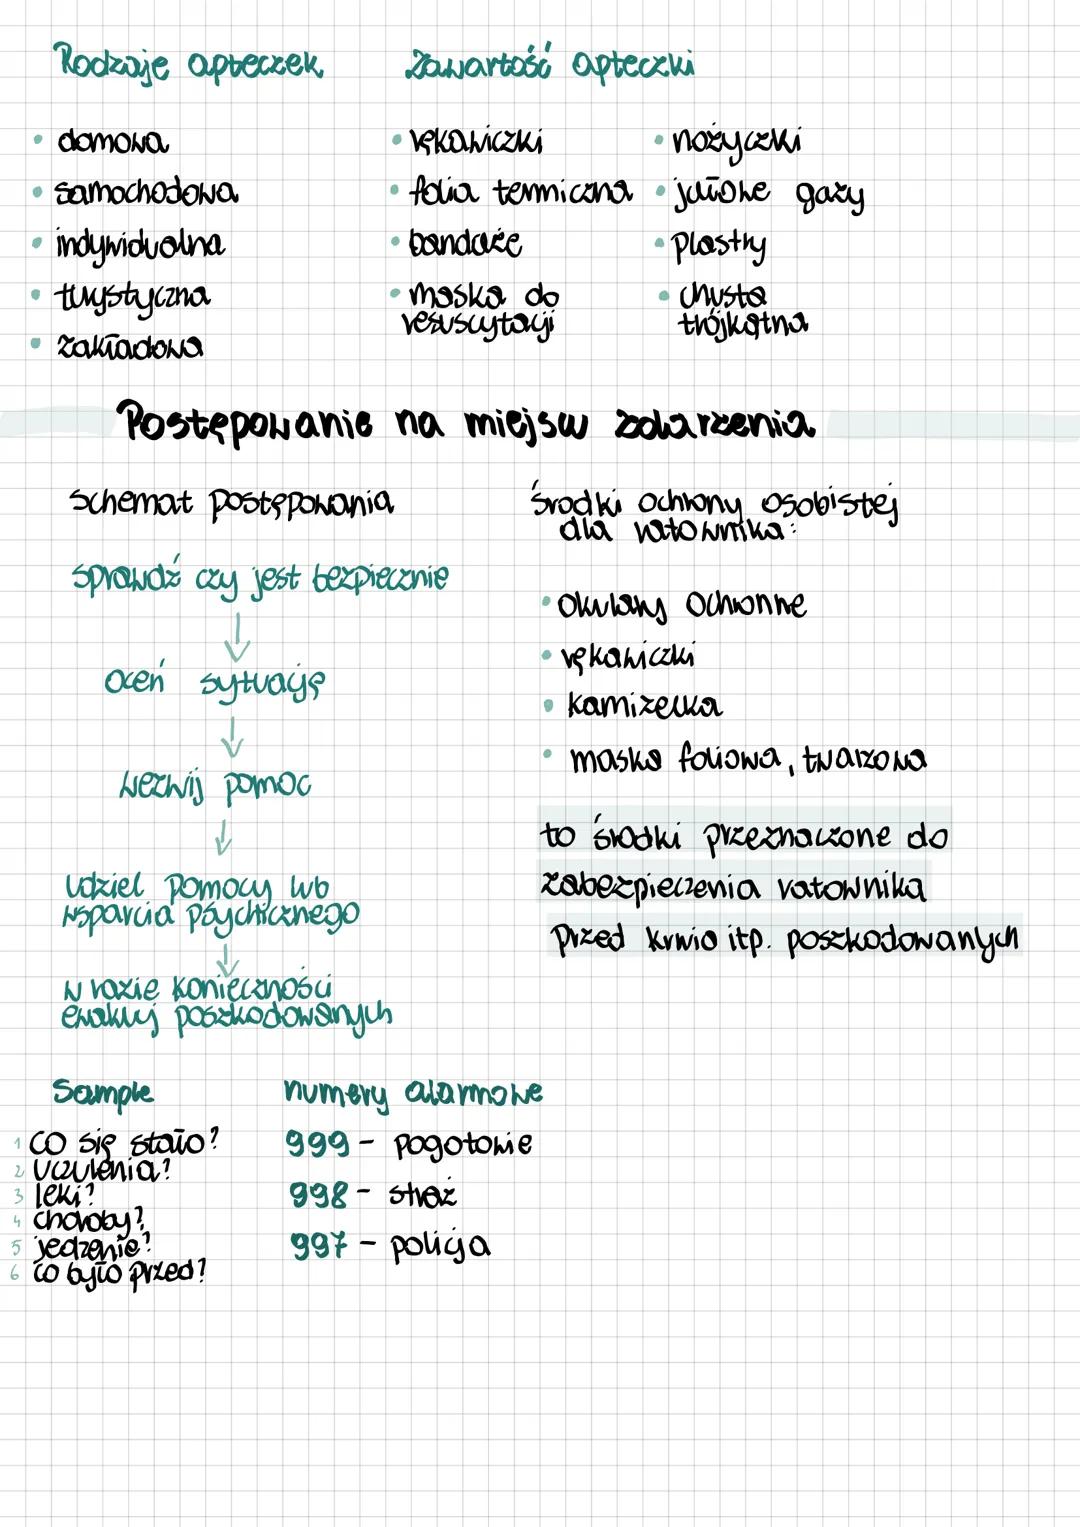 Rodzaje apteczek
• domowa
• samochodowa
• indywidualna
• turystyczna
• zakładowa
Zawartość apteczki
• rękawiczki
• folia termiczna
• bandaże
• maska do
resuscytacji
• nożyczki
• jałowe gazy
• plastry
• chusta
trójkątna
Postępowanie na miejscu zdarzenia
schemat postępowania
sprawdź czy jest bezpiecznie
↓
oceń sytuację
↓
wezwij pomoc
↓
udziel pomocy lub
wsparcia psychicznego
↓
w razie konieczności
ewakuuj poszkodowanych
środki ochrony osobistej
dla ratownika:
• okulary ochronne
• rękawiczki
• kamizelka
• maska foliowa, twarzowa
to środki przeznaczone do
zabezpieczenia ratownika
przed krwią itp. poszkodowanych
Sample
1 co się stało?
2 uczulenia?
3 leki?
4 choroby?
5 jedzenie?
6 co było przed?
numery alarmowe
999 - pogotowie
998 - straż
997 - policja